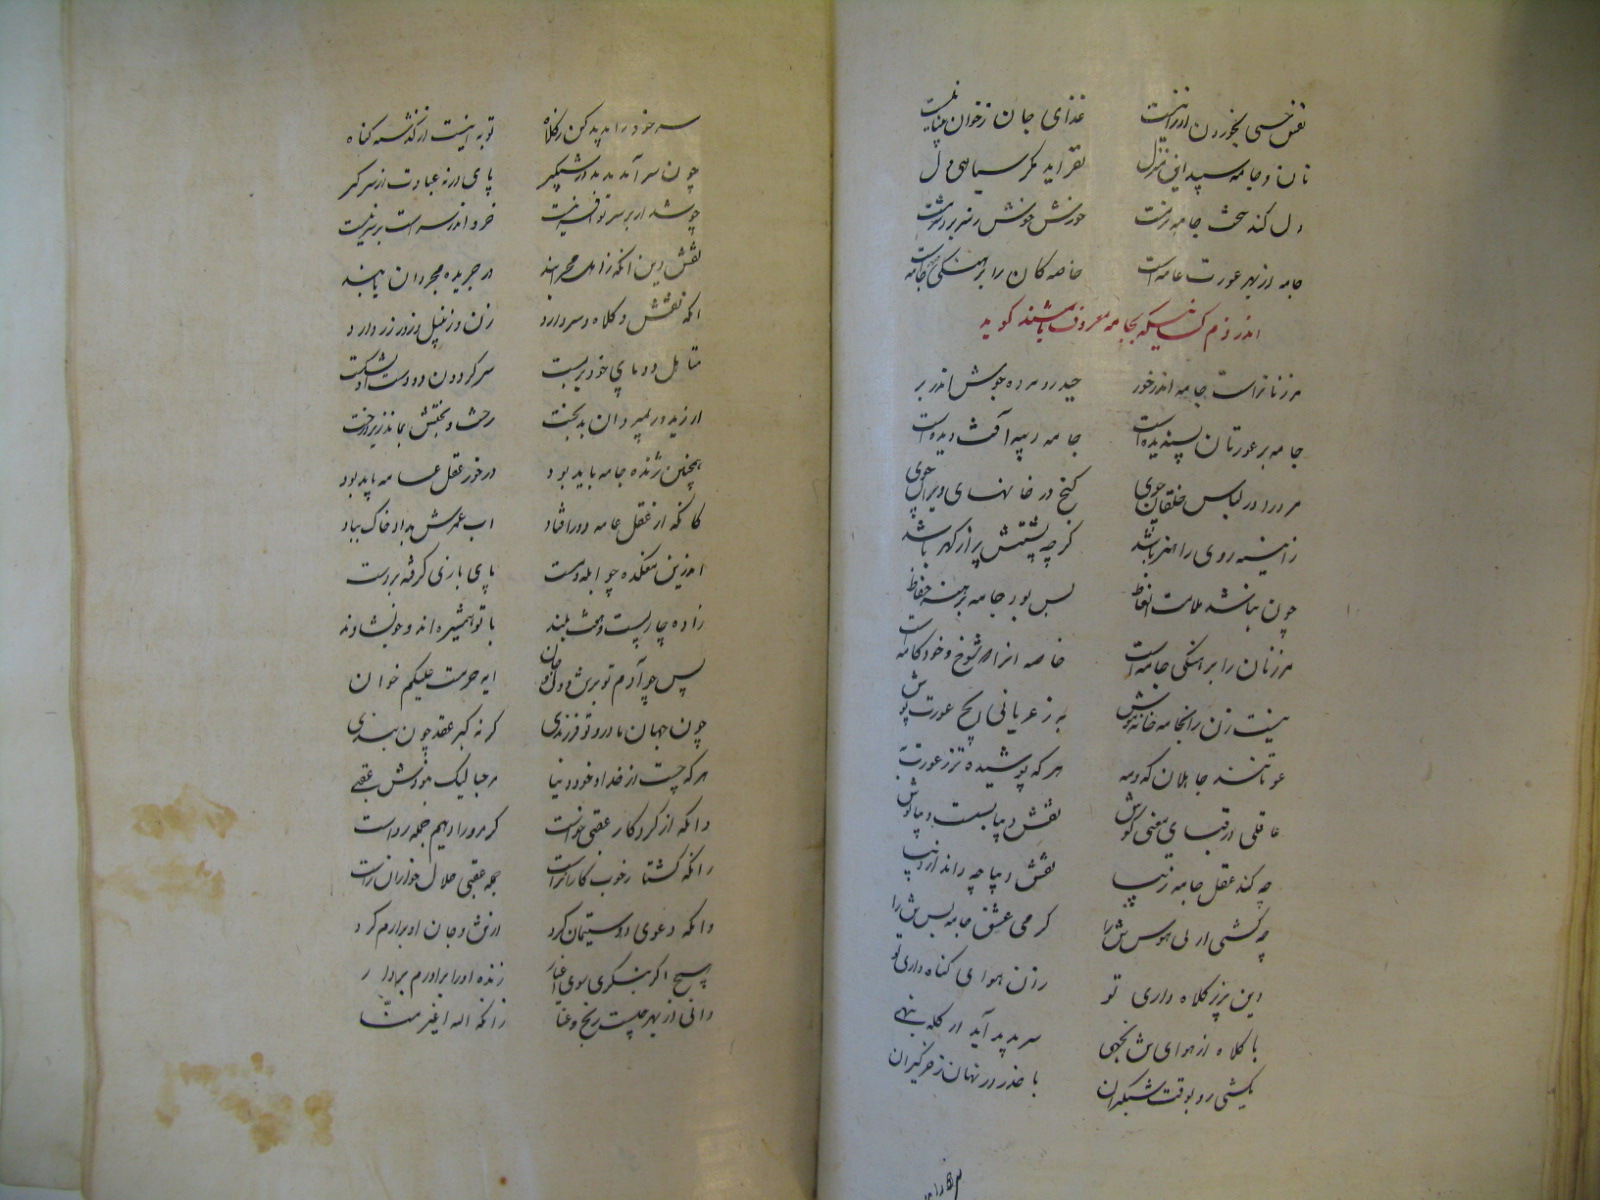 نفس حسی بخوردن ارزانیست غذای جان ز خوان یزدانیست
نان و جامه سپید این منزل نفزاید مگر سیاهی دل
دل کند سخت جامه نرمت خورش خوش
جامه از بهر عورت عامه است خاصگان را برهنگی جامه است
اندر ذم کسانیکه بجامه معروف باشند گوید
مر زنانراست جامه اندر خور حیدر و مرد و جوش اندر بر
جامه بر عورتان پسندیده است جامه دیبه آفت دیده است
مرد در لباس خلقان جوی گنج در خانهای ویران جوی
ز آینه روی را هنر باشد گرچه پشتش پر از گهر باشد
چون نباشد ملامت الفاظ بس بود جامه برهنه حفاظ
مر زنان را برهنگی جامه است خاصه آنرا که شوخ و خودکامه است
نیست زن را بجامه خانه هوش به ز عریانی هیچ عورت پوش
عورتانند جاهلان که و مه هر که پوشیده تر ز عورت به
عاقلی از قبای معنی کوش نقش دیبا بست دیباپوش
چه کند عقل جامه زیبا نقش دیباچه داند از دیبا
چه کشی از پی هوس تن را گرمی عشق جامه بس تن را
این بزیر کلاه داری تو زان هوای گناه داری تو
با کلاه از هوای تن نجهی سر پدید آید ار کله بنهی
بکشی رو بوقت شبگیران با حذر در نهان ز خرگیران
سر خود را پدید کن ز کلاه توبه اینست از گذشته گناه
چون سر آمد پدید در شبگیر پای در نه عبادت از سر گیر
چو شد از سر تو افسر نیست خرد اندر سر است بر سر نیست
نقش دین آنکه زاهل مجرابند در جریده مجردان یابند
آنکه نقش و کلاه و سر دارد زن و زنبیل و زور و زر دارد
متأهل دو پای خود بر بست سر گردون دو دست او بشکست
ار زید ور بمیرد آن بدبخت رخت و بختش بماند زیر درخت
همچنین ژنده جامه باید بود در خور عقل عامه باید بود
کانکه از عقل عامه دور افتاد آب عمرش بداد خاک بباد
اندرین تنگده چو ابله و مست پای بازی گرفته بر دست
زاده چار پست و هفت بلند با تو همشیره اند و خویشاوند
پس چو آدم تو برتن و دل و جان آیه حرمت علیکم خوان
چون جهان مادر و تو فرزندی گر نه گبر عقد چون بندی
هر که جست از خدا خود دنیا مرحبا لیک نبودش عقبی
وانکه از کردگار عقبی خواست گر مر او را دهیم جمله رواست
زانکه کشتار خوب کاران راست جمله عقبی حلال خواران راست
وانکه دعوی دوستی مان کرد از تن و جان او برآرم گرد
هیچ اگر بنگری سوی اغیار زنده او را برآورم بر دار
دانی از بهر چیست رنج و عنا زانکه الله اغیر منا